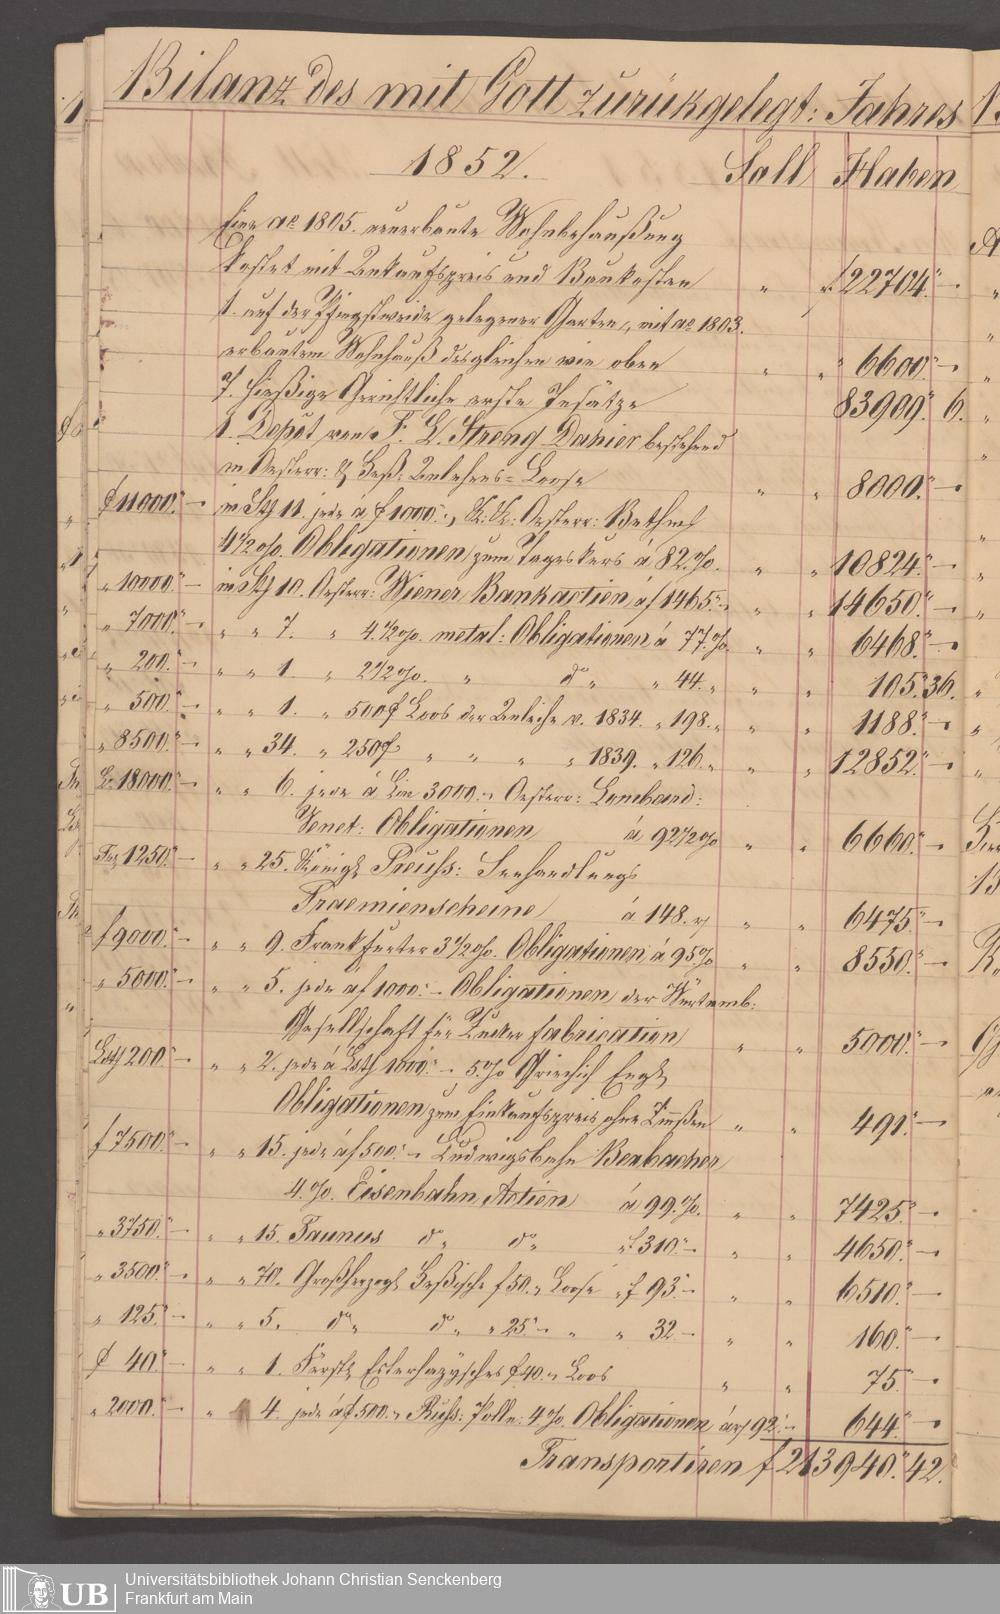 Bilanz des mit Gott zurükgelegt: Jahres
1852. Soll Haben
Eine ao 1805. neuerbaute Wohnbehaußung
kostet mit Ankaufspreis und Baukosten " f 22704." —
1. auf der Pfingstweide gelegener Garten, mit ao 1803.
erbautem Wohnhauß desgleichen wie oben " " 6600." —
7. hießige Gerichtliche erste Insätze 83909." 6.
1. Depot von F. E. Streng Dahier bestehend
in Oesterr: & Heß: Anlehens-Loose " " 8000." —
11000." — in Stk 11. jede á f 1000." K: K: Oesterr: Bethm
4 1/2 o/o. Obligationen zum Tageskurs á 82. o/o. " " 10824." —
" 10000." — in Stk 10. Oesterr: Wiener Bankactien á f 1465." " " 14650." —
" 7000." — " " 7. " 4 1/2 o/o. metal: Obligationen á 77. o/o. " " 6468." —
" 200." — " " 1. " 2 1/2 o/o. " do " " 44. " " " 105." 36.
" 500." — " " 1. " 500 f Loos der Anleihe v. 1834. " 198. " " " 1188." —
" 8500." — " " 34. " 250 f " " " " 1839. " 126. " " " 12852." —
18000." — " " 6. jede á Lire 3000." Oesterr: Lombard:
Venet: Obligationen á 92 1/2 o/o " " 6660." —
1250." — " " 25. Königl Preuss: Seehandlungs
Praemienscheine á 148. " " 6475." —
f 9000." — " " 9. Frankfurter 3 1/2 o/o. Obligationen á 95 o/o " " 8550." —
" 5000." — " " 5. jede á f 1000." — Obligationen der Würtemb:
Gesellschaft für Zucker fabrication " " 5000." —
200." — " " 2. jede á 5. o/o Griechisch Engl
Obligationen zum Einkaufspreis ohne Zinsen " " 491." —
f 7500." — " " 15. jede á f 500." Ludwigsbahn Bexbacher
4. o/o. Eisenbahn Actien á 99. o/o. " " 7425." —
" 3750." — " " 15. Taunus do " do " " f 310." — " " 4650." —
" 3500." — " " 70. Großherzogl Heßische f 50. " Loose " f 93." — " " 6510." —
" 125." — " " 5. do " do " " 25." — " " 32 — " " 160." —
40." — " " 1. Fürstl Esterhazysches f 40. " Loos " " 75." —
" 2000." — " 4. jede á f 500. " Russ: Polln: 4 o/o. Obligationen á 92." — 644." —
Transportiren f 213940." 42.
UB
Universitätsbibliothek Johann Christian Senckenberg
Frankfurt am Main